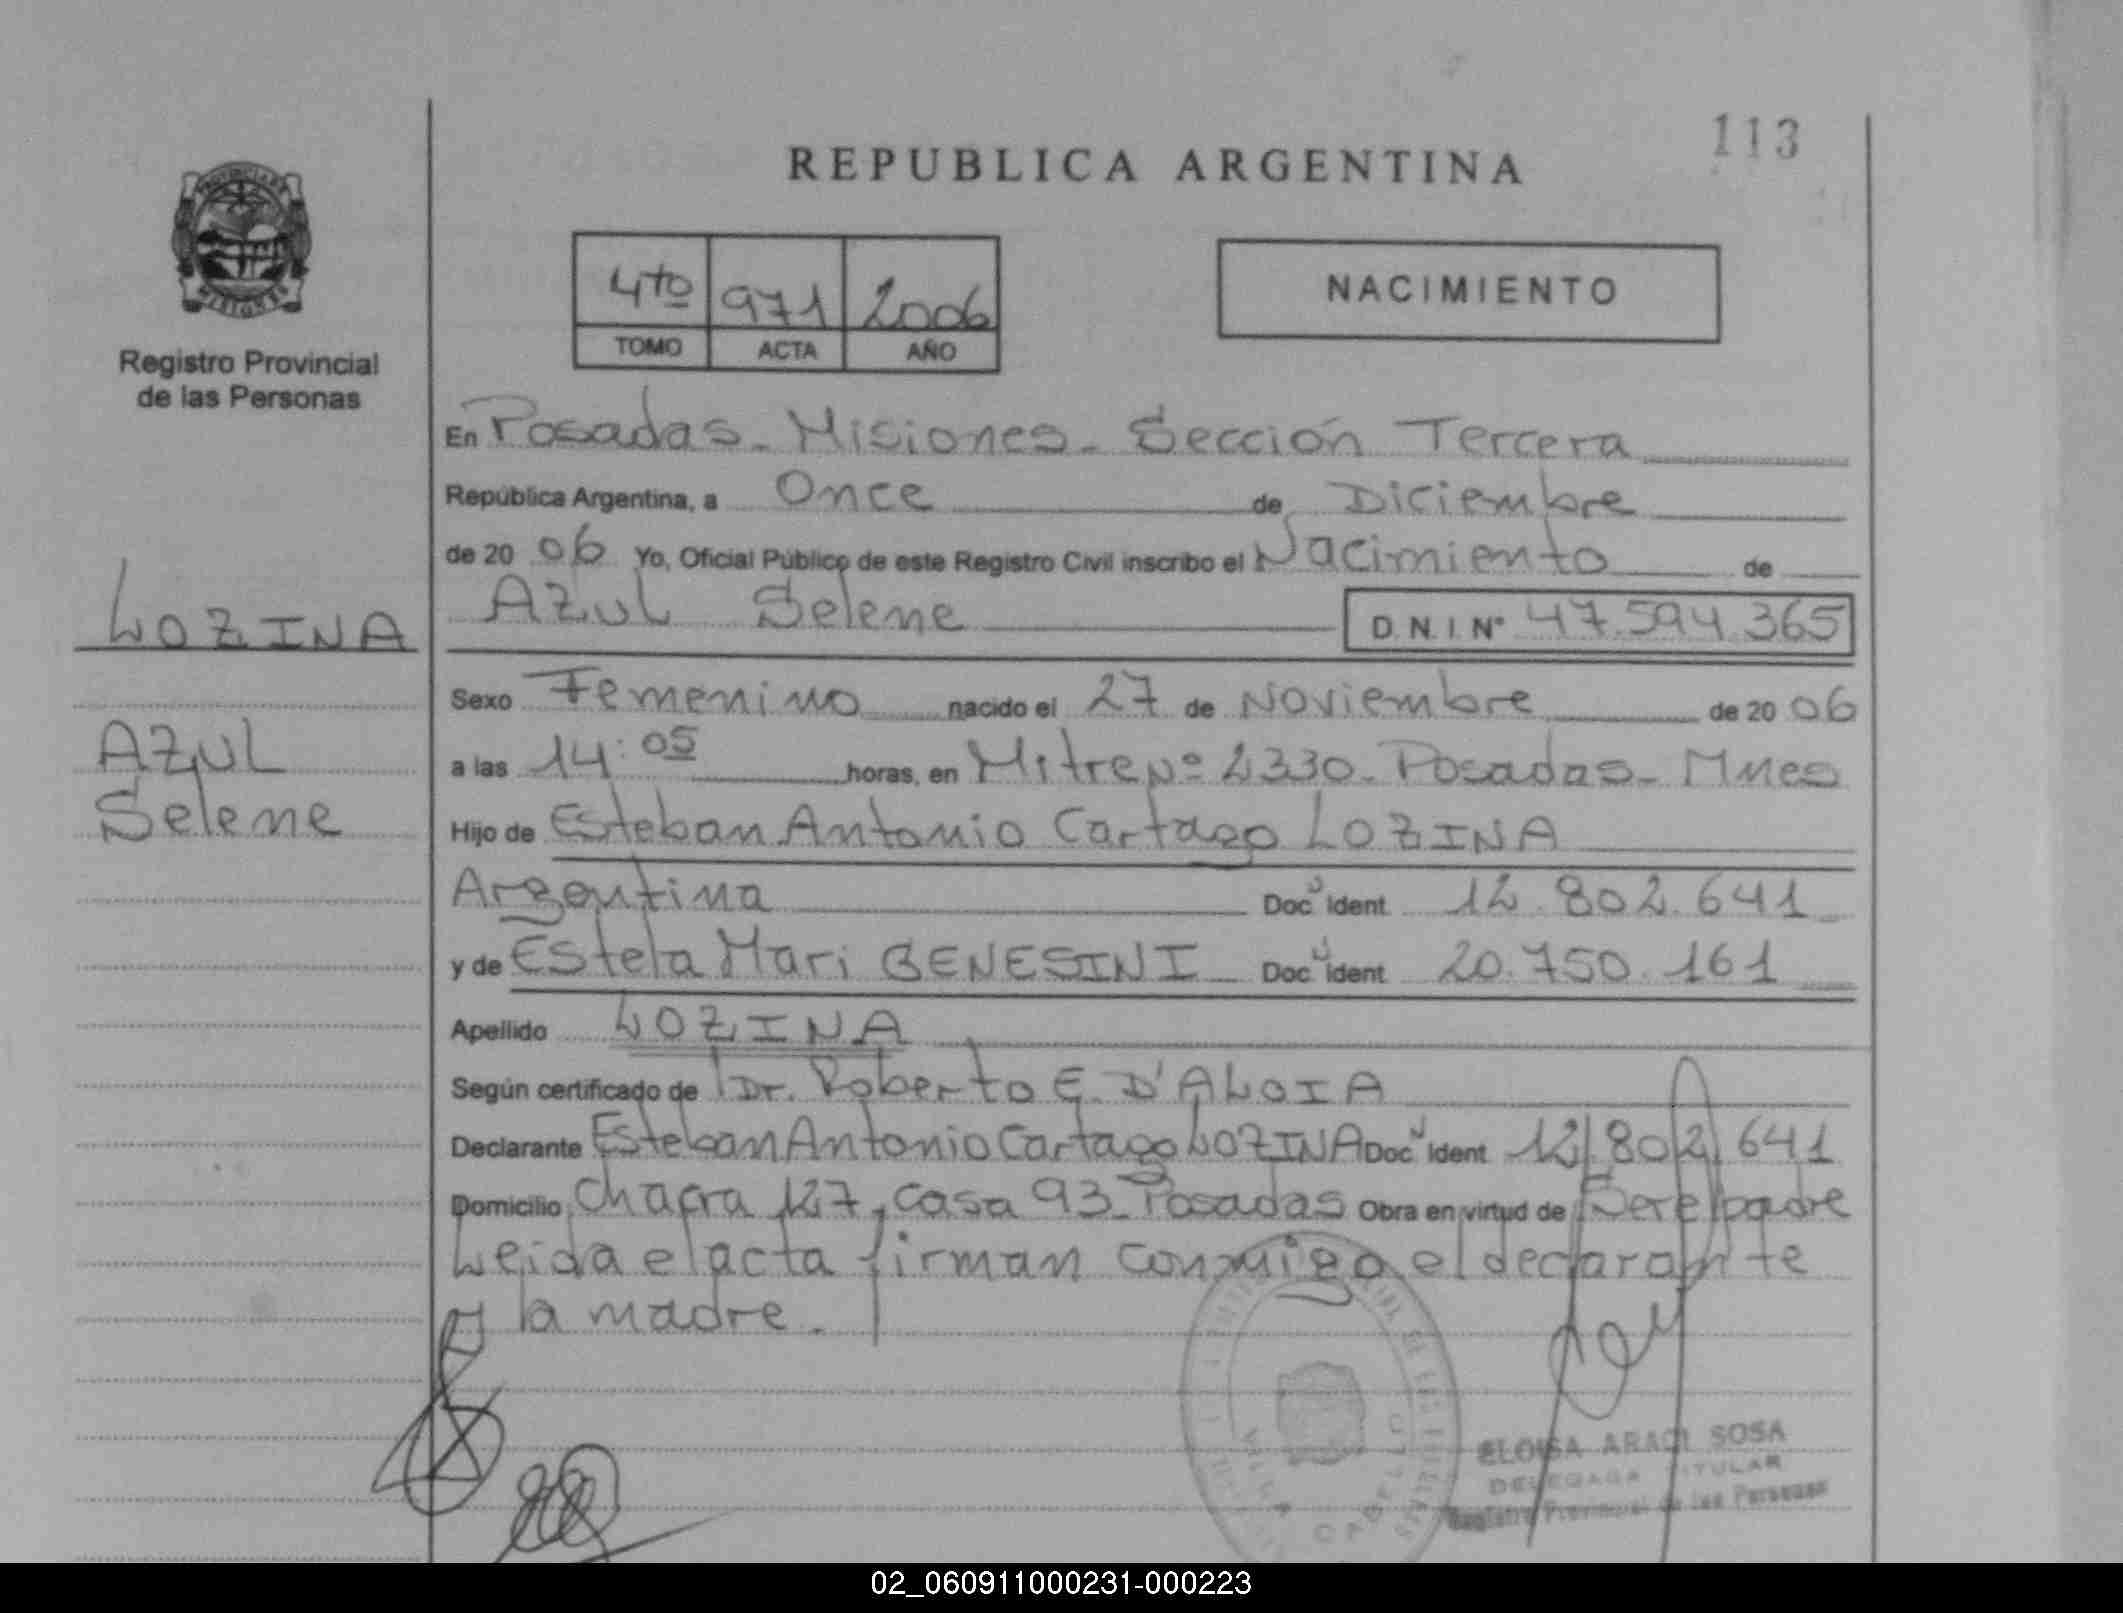 113
REPUBLICA ARGENTINA
4to 971 2006
TOMO ACTA AÑO
NACIMIENTO
Registro Provincial
de las Personas
LOZINA
AZUL
Selene
En Posadas - Misiones - Sección Tercera
República Argentina, a Once de Diciembre
de 20 06 Yo, Oficial Público de este Registro Civil inscribo el Nacimiento de
AZUL Selene D.N.I. Nº 47.594.365
Sexo Femenino nacido el 27 de Noviembre de 20 06
a las 14:05 horas, en Mitre Nº 2330 - Posadas - Mnes
Hijo de Esteban Antonio Cartago LOZINA
Argentina Doc Ident 12.802.641
y de Estela Mari BENESINI Doc Ident 20.750.161
Apellido LOZINA
Según certificado de Dr. Roberto E. D'ALOIA
Declarante Esteban Antonio Cartago LOZINA Doc Ident 12.802.641
Domicilio Chacra 127, casa 93 - Posadas Obra en virtud de Ser el padre
Leida el acta firman conmigo el declarante
y la madre.
ELOISA ARACI SOSA
DELEGADA TITULAR
Registro Provincial de las Personas
02_060911000231-000223